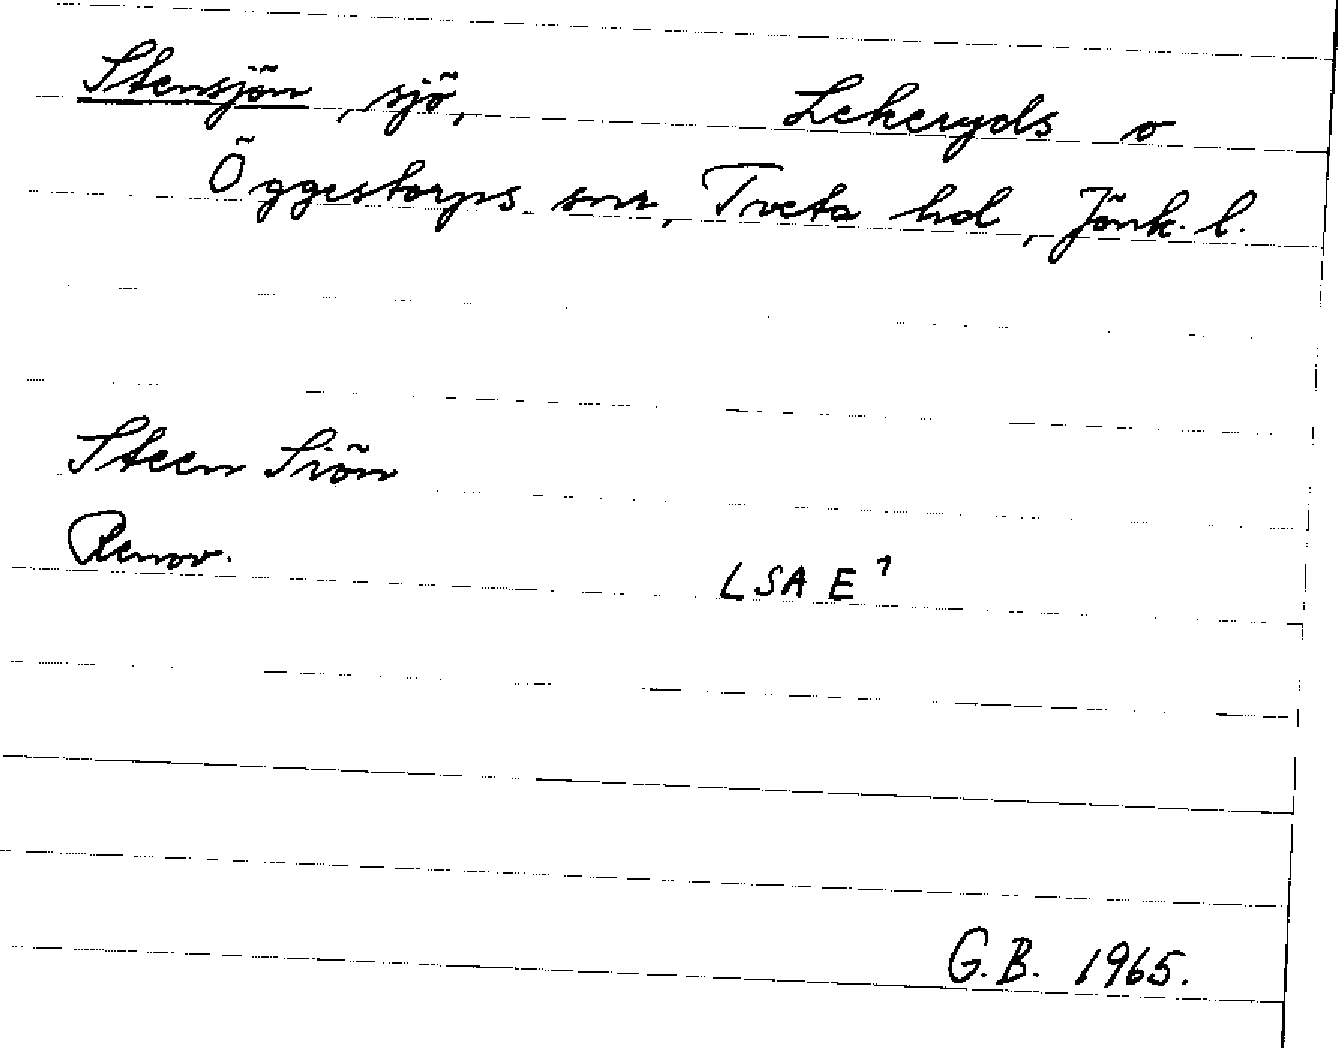 Stensjön, sjö, Lekeryds o
Öggestorps snr, Tveta hd, Jönk. l.
Steen Siön
Renov. LSA E 1
G.B. 1965.